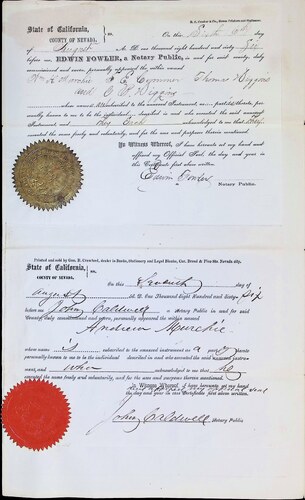 State of California,
COUNTY OF NEVADA.
ss.
On this Sixth day
of August A. D. one thousand eight hundred and sixty Six
before me EDWIN FOWLER, a Notary Public, in and for said county, duly
commissioned and sworn, personally appeared the within named
Thomas Higgins
and
whose names subscribed to the annexed Instrument, as parties thereto, personally
known to me to be the individuals described in and who executed the said annexed
Instrument and they Each acknowledged to me that they
executed the same freely and voluntarily, and for the uses and purposes therein mentioned.
In Witness Whereof, I have hereunto set my hand and
affixed my Official Seal, the day and year in this
Certificate first above written.
Edwin Fowler
Notary Public.
Printed and sold by Geo. R. Crawford, dealer in Books, Stationery and Legal Blanks, Cor. Broad & Pine sts. Nevada city.
State of California,
COUNTY OF NEVADA.
ss.
On this Seventh day of
August A. D. One Thousand Eight Hundred and Sixty Six
before me John Caldwell a Notary Public in and for said
County, duly commissioned and sworn, personally appeared the within named
Andrew Murchie
whose name is subscribed to the annexed instrument as a party thereto,
personally known to me to be the individual described in and who executed the said annexed instrument
and who acknowledged to me that he
executed the same freely and voluntarily, and for the uses and purposes therein mentioned.
In Witness Whereof, I have hereunto set my hand
and affixed my official seal
the day and year in this Certificate first above written.
John Caldwell Notary Public